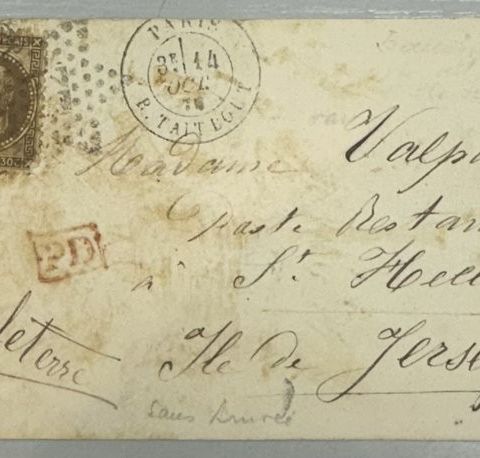 PARIS
3E 14
OCT.
70
R. TAITBOUT
30
Madame Valp
poste Restan
PD
à St Hel
leterre
Ile de Jerse
sans